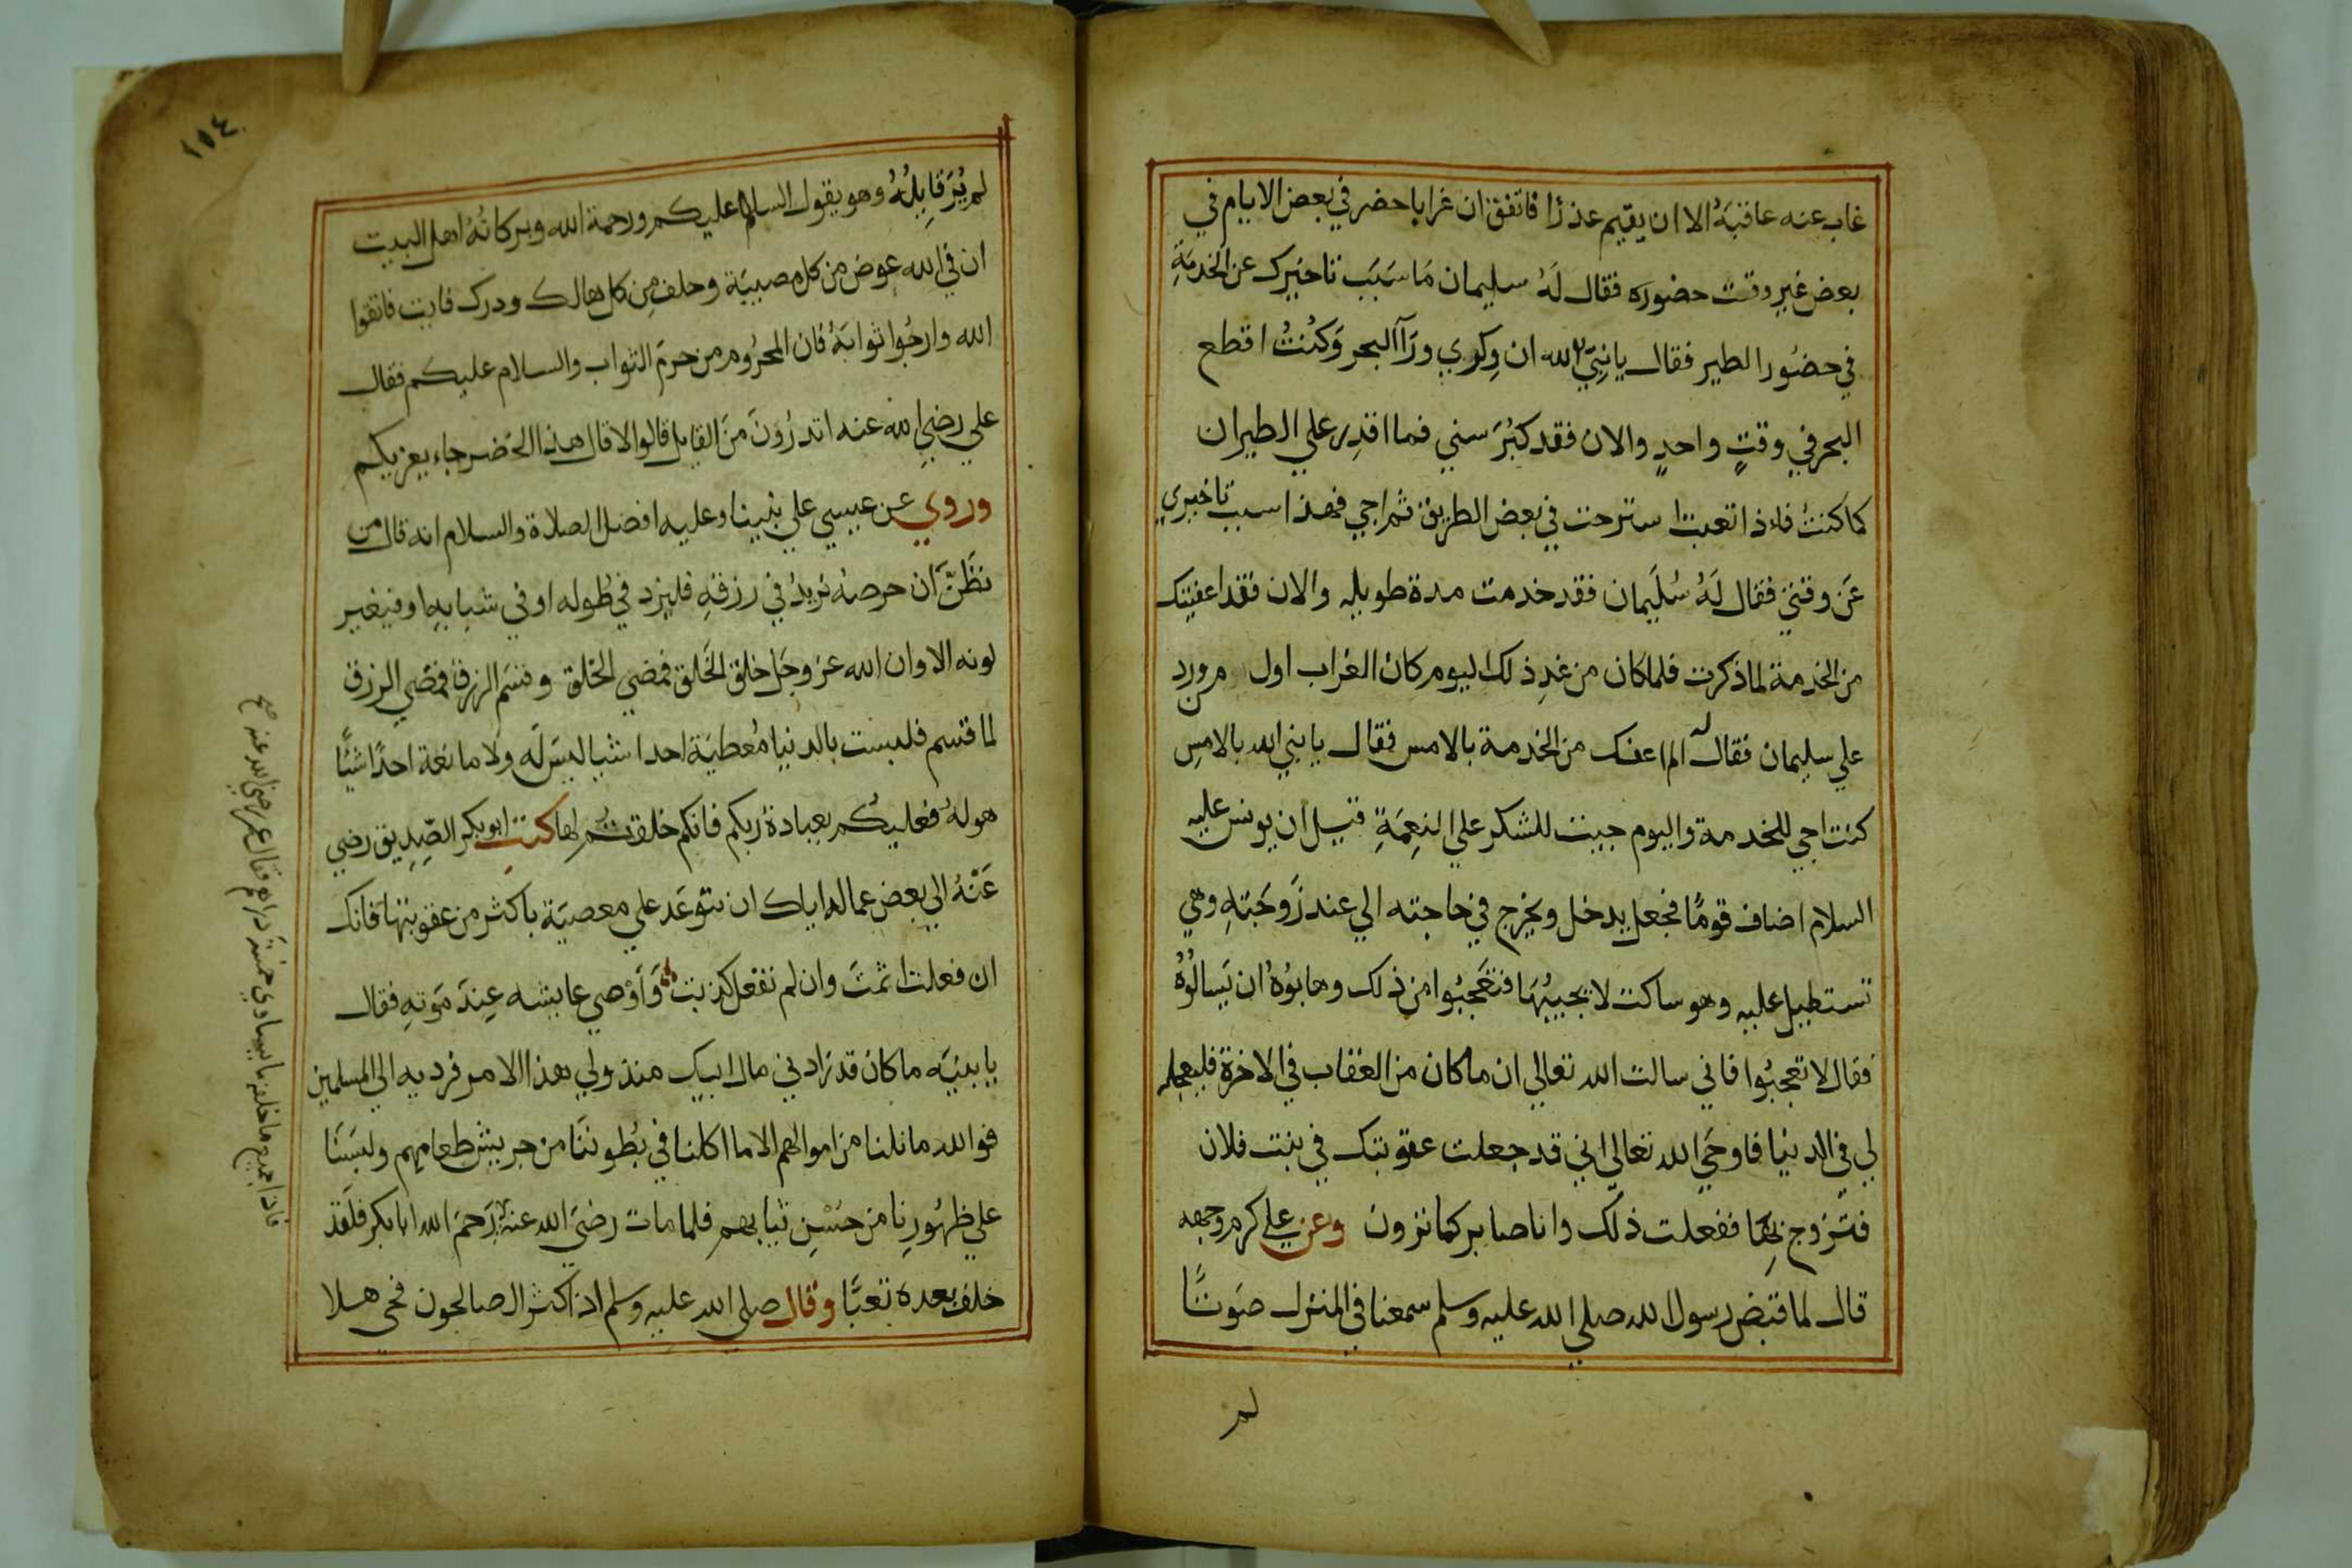 غاب عنه عاقبَهُ الا ان يقيم عذرًا فاتفق ان غرابا حضر في بعض الايام في
بعض غير وقت حضوره فقال لَهُ سليمان مَا سَبَب تاخيرك عن الخدمَةِ
في حضُور الطير فقال يا نبيّ الله ان وِكري ورَآ البحر وَكنْتُ اقطع
البحر في وقتٍ واحدٍ والان فقد كبُرَ سني فما اقدِر علي الطيران
كما كنتُ فاءذا تعبت استرحت في بعض الطريق ثم اجي فهذا سبب تاخيري
عَن وقتي فقال لَهُ سُلَيمان فقد خدمت مدة طويله والان فقد اعفيتك
من الخدمة لما ذكرت فلما كان من غدِ ذلك اليوم كان الغراب اول من ورد
علي سليمان فقال له الم اعفك من الخدمة بالامس فقال يا نبي الله بالامسِ
كنت اجي للخدمة واليوم جيت للشكر علي النِعمَةِ قيل ان يونس عليه
السلام اضاف قومًا فجعل يدخل ويخرج في حاجته الي عند زَوجَتِهِ وهي
تستطيل عليه وهو ساكت لا يجيبُهَا فتعَجبُوا من ذلك وهابوُهُ ان يَسالُوُهُ
فقال لا تعجبُوا فاني سالت الله تعالي ان ما كان من العقاب في الاخرة فليعجله
لي في الدنيا فاوحَي الله تعالي اني قد جعلت عقوبتك في بنت فلان
فتزوج بِهَا ففعلت ذلك وانا صابر كما ترون وعن علي كرم وجهه
قال لما قبَض رسول الله صلي الله عليه وسلم سمعنا في المنزل صَوتًا
لم
١٥٤
لم يُرَ قايِلُهُ وهو يقول السلام عليكم ورحمة الله وبركاتُهُ اهل البيت
ان في الله عوض من كل مصيبَة وخلف مِن كل هالك ودرك فايت فاتقوا
الله وارجُوا ثوابَهُ فان المحرُوم من حرمَ الثواب والسلام عليكم فقال
علي رضي الله عنه اتدرُونَ منَ القايل قالوا لا قال هذا الخضر جاء يعزيكم
وروي عن عيسي علي نبينا وعليه افضل الصلاة والسلام انه قال من
يظَنَّ ان حرصه يزيدُ في رزقهِ فليزد في طوله او في شبابهِ او فيغير
لونه الا وان الله عز وجَل خلق الخَلق فمضي الخلق وقسَم الرزق فمضي الرزق
لما قسم فليست بالدنيا مُعطيَة احدا شيا ليسَ له ولا مانعَة احدًا شيًا
هو لهُ فعليكُم بعبادة ربكم فانكم خلقتُم لها كتب ابو بكر الصّدِيق رضي
عَنْهُ الي بعض عماله اياك ان تتوعَد علي معصيَة باكثر من عقوبتها فانك
ان فعلت اثمتَ وان لم تفعل كذبت وَأوْصي عايشه عِندَ مَوتهِ فقال
يا بنيَه ما كان قد زاد في مال ابيك منذ ولي هذا الامر فرديه الي المسلمين
فوالله ما نلنا من اموالهم الا ما اكلنا في بُطوننَا من جريش طعامهم ولبسَنَا
علي ظهُورِنا من خَشِن ثيابهم فلما مات رضيَ الله عنه رَحمَ الله ابا بكر فلقد
خلف بعده تَعبًا وقال صلي الله عليه وسلم اذا كثر الصالحون فحي هلا
فاذا جميع ما خلفه ما يساوي خمسَة دراهم فقال عمر رضي الله عنه صح